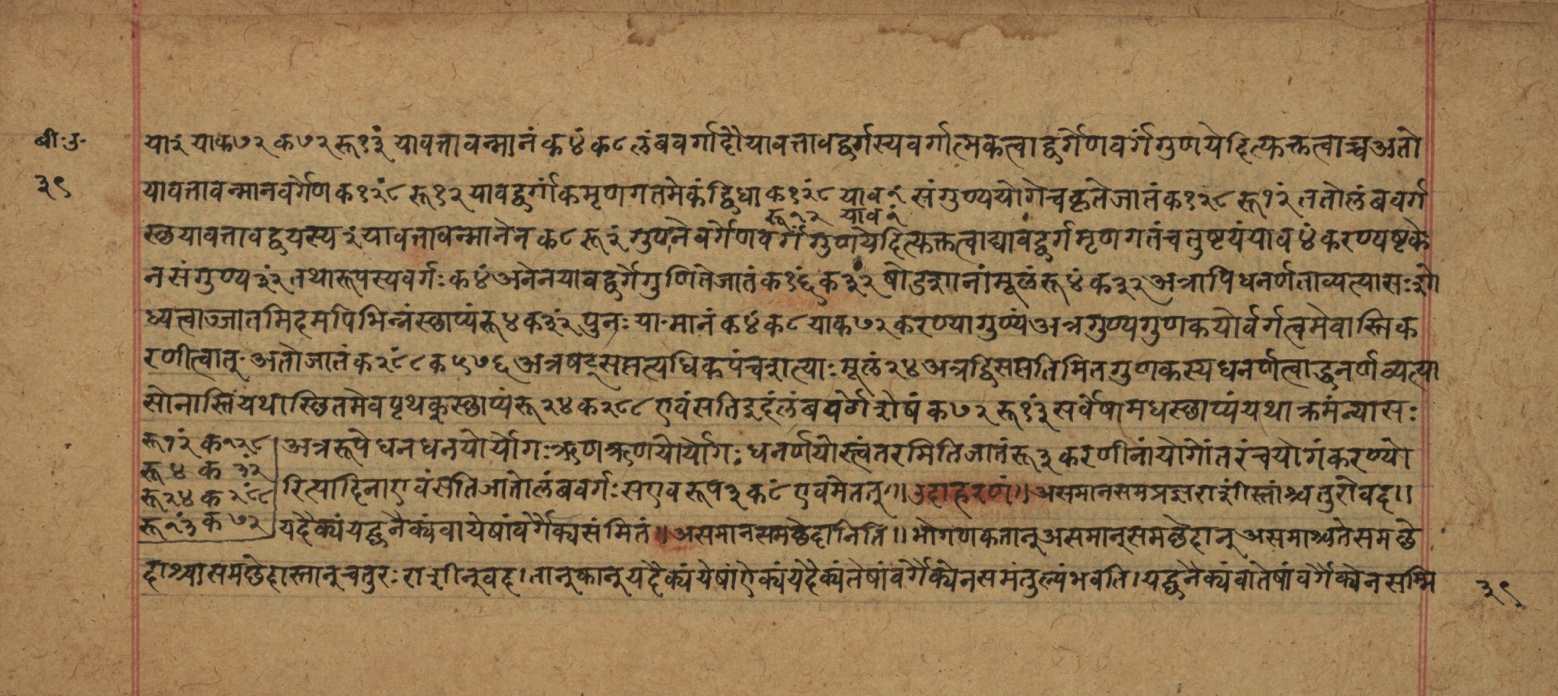 बी॰उ॰
३९
या३ याक७२ क७२ रू१३ं यावत्तावन्मानं क४ं क८ लंबवर्गादौ यावत्तावद्वर्गस्यवर्गात्मकत्वाद्वर्गेणवर्गंगुणयेदित्युक्तत्वाच्च अतो
यावत्तावन्मानवर्गेण क१२ं८ रू१२ यावद्वर्गांकमृणगतमेकंद्विधा क१२ं८ याव१ं संगुण्ययोगेचकृतेजातं क१२८ रू१२ं ततोलंबवर्ग
रू१२ याव१ं
स्छयावत्तावद्वयस्य२ंयावत्तावन्मानेन क८ रू२ं गुणने वर्गेणवर्गंगुणयेदित्युक्तत्वाद्यावद्वर्गमृणगतंचतुष्टयंयाव४ं करण्यष्टके
नसंगुण्य३२ं तथारूपस्यवर्गः क४ं अनेनयावद्वर्गेगुणितेजातं क१६ं क३२ं षोडशानांमूलं रू४ं क३२ अत्रापिधनर्णताव्यत्यासः शो
ध्यत्वाज्जातमिदमपिभिन्नंस्छाप्यं रू४ क३२ं पुनः या-मानं क४ं क८ याक७२ करण्यागुण्यं अत्रगुण्यगुणकयोर्वर्गत्वमेवास्तिक
रणीत्वात् अतोजातं क२८ं८ क५७६ अत्रषट्सप्तत्यधिकपंचशत्याः मूलं२४ अत्रद्विसप्ततिमितगुणकस्यधनर्णत्वाद्धनर्णव्यत्या
सोनास्तियथास्छितमेवपृथक्स्छाप्यं रू२४ क२८८ एवंसतिइहलंबवर्गेशेषं क७२ रू१३ं सर्वेषामधस्छाप्यं यथाक्रमंन्यासः
रू१२ं क१२८ अत्ररूपेधनधनयोर्योगः ऋणऋणयोर्योगः धनर्णयोस्त्वंतरमितिजातं रू३ करणीनांयोगोंतरंचयोगंकरण्यो
रू४ क३२ं
रू२४ क२८ं८ रित्यादिनाएवंसतिजातोलंबवर्गः सएव रूप३ क८ं एवमेतत् ॥ उदाहरणं ॥ असमानसमप्रज्ञराशींस्तांश्चतुरोवद॥
रू१ं३ क७२ यदैक्यंयद्घनैक्यंवायेषांवर्गैक्यसंमितं ॥ असमानसमछेदानिति ॥ भोगणकतान् असमान्समछेदान् असमाश्चतेसमछे
दाश्चासमछेदास्तान्चतुरः राशीन्वद । तान्कान् यदैक्यंयेषांऐक्यंयदैक्यंतेषांवर्गैक्येनसमंतुल्यंभवति । यद्घनैक्यंवातेषांवर्गैक्येनसम्मि
३९